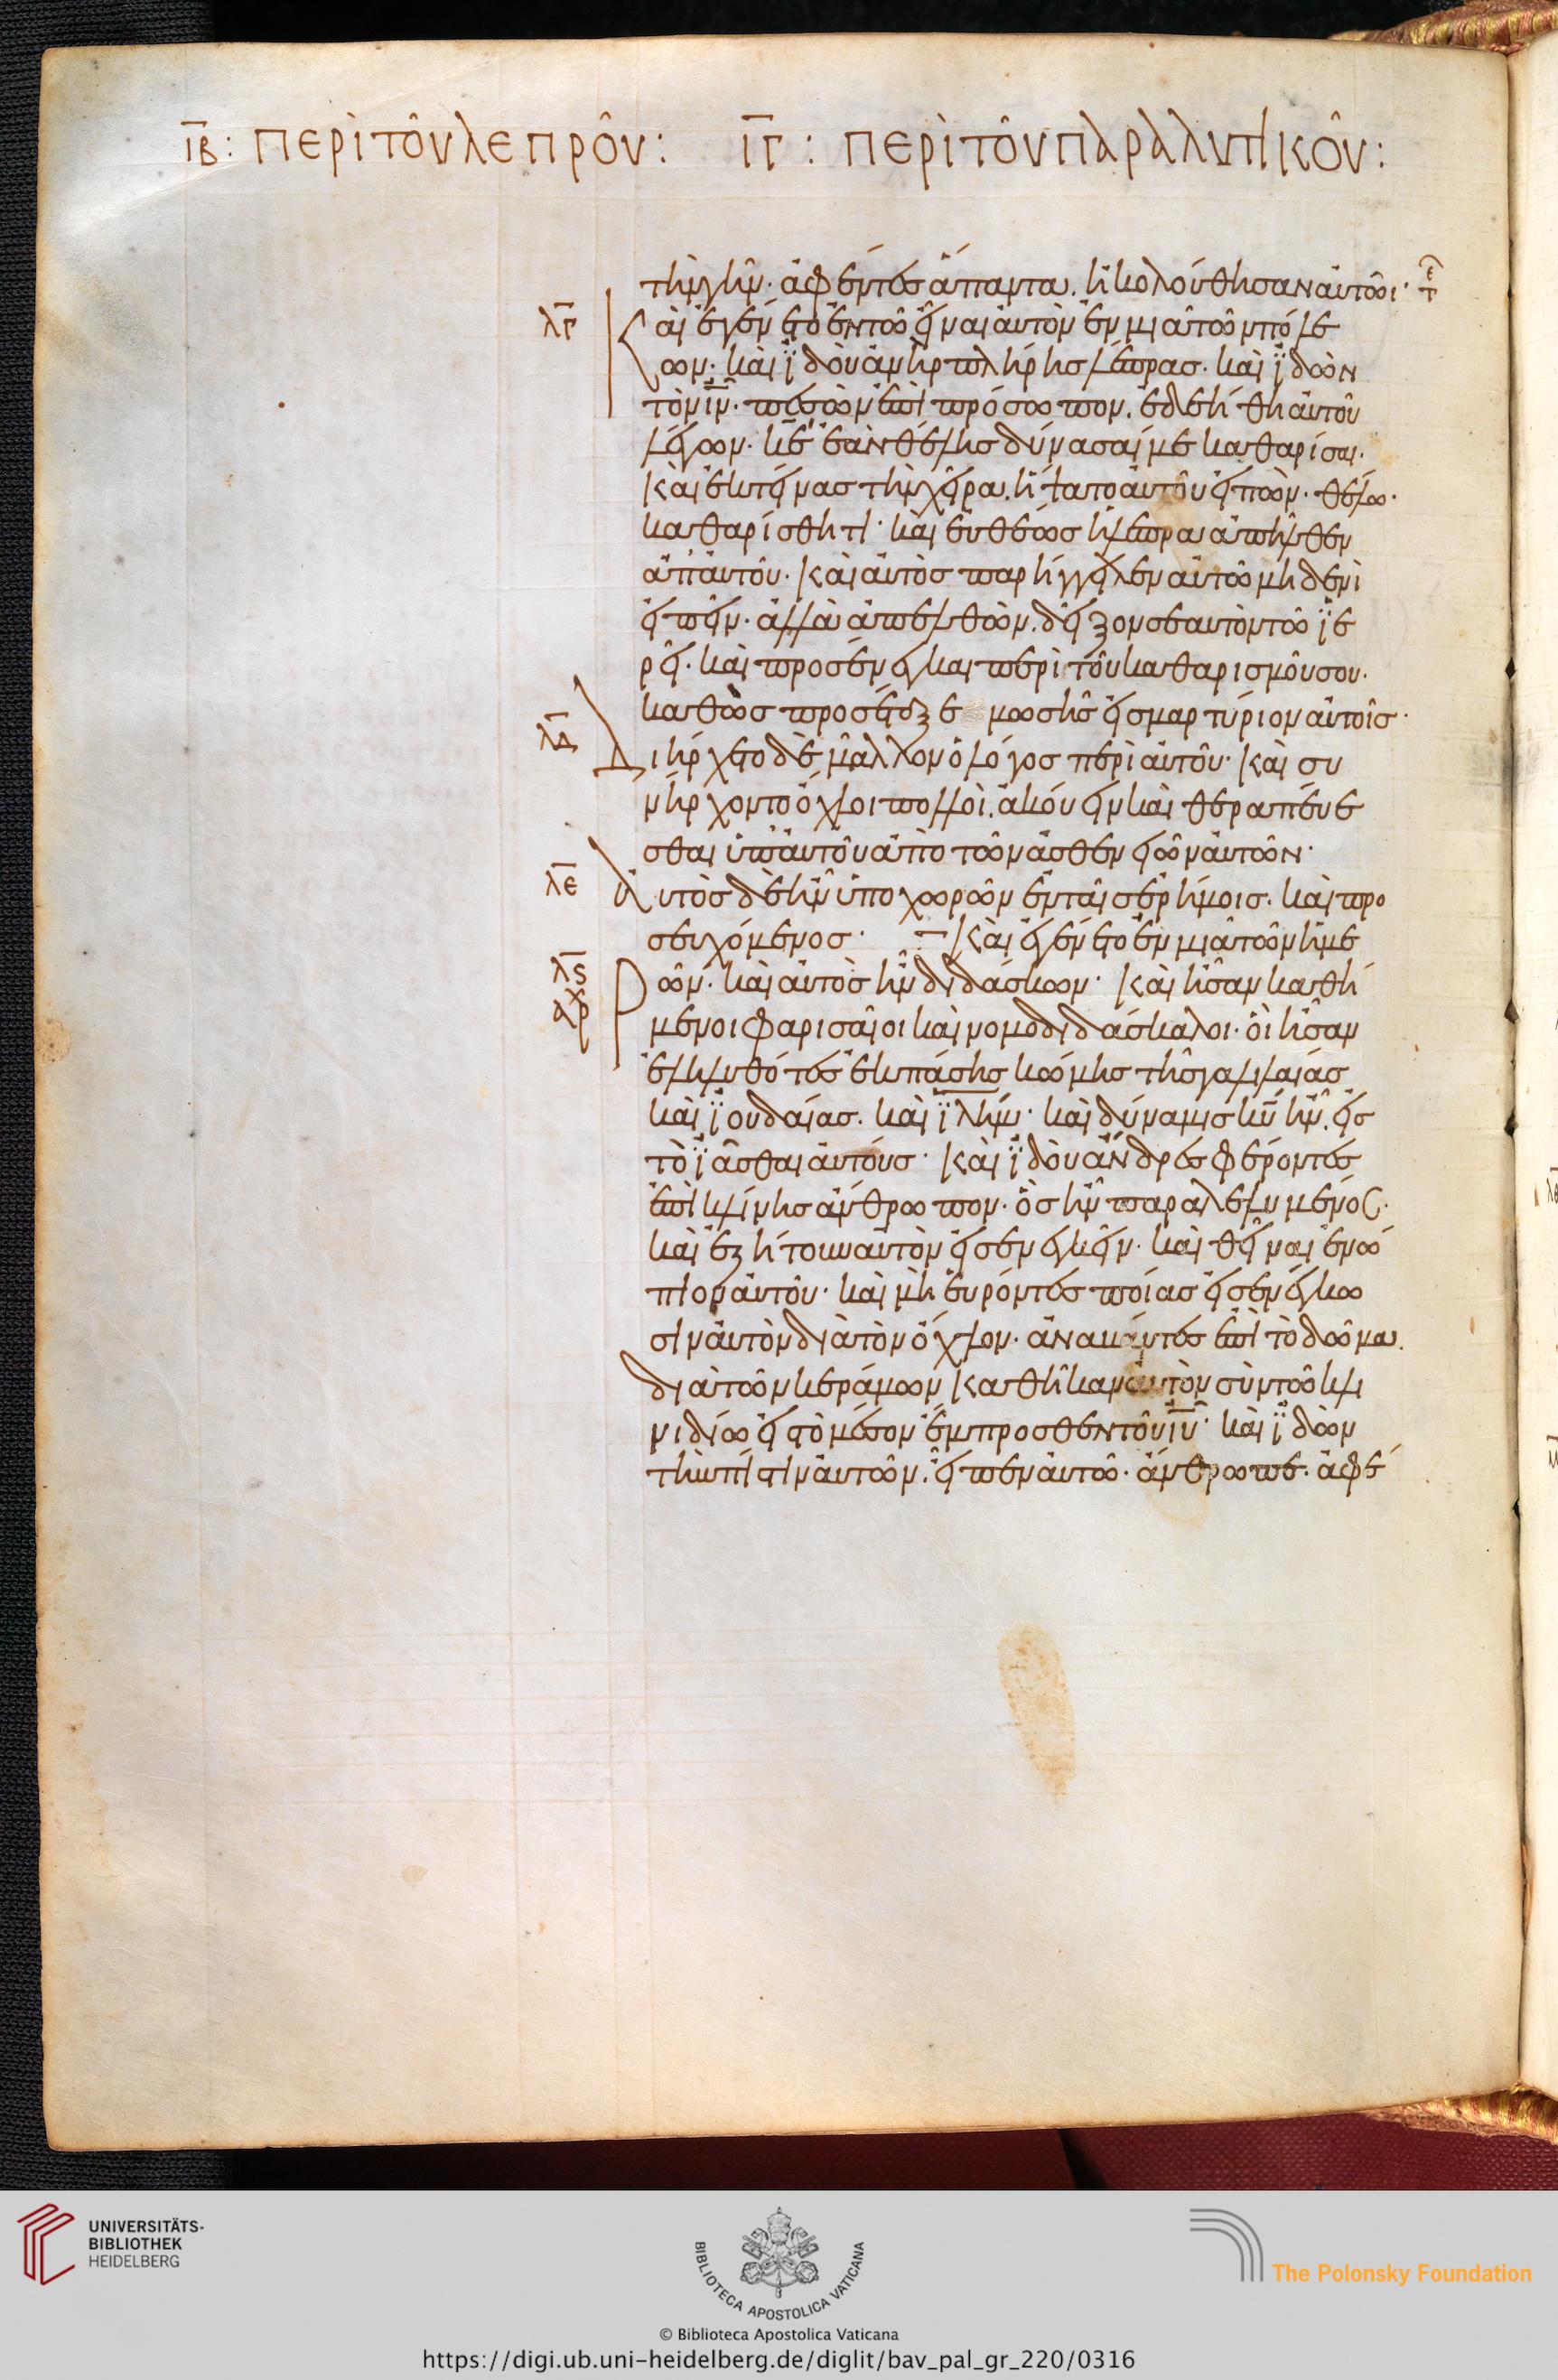 ιβ: περὶ τοῦ λεπροῦ: ιγ: περὶ τοῦ παραλυτικοῦ:
τὴν γῆν· ἀφέντες ἅπαντα. ἠκολούθησαν αὐτῶι·
λγ
Καὶ ἐγένετο ἐν τῶ εἶναι αὐτὸν ἐν μιᾶ τῶν πόλε
ων· καὶ ϊδοὺ ἀνὴρ πλήρης λέπρας. καὶ ϊδὼν
τὸν ιν· πεσὼν ἐπὶ πρόσωπον. ἐδεήθη αὐτοῦ
λέγων· κε ἐὰν θέλης δύνασαί με καθαρίσαι.
Καὶ ἐκτείνας τὴν χεῖρα. ἥψατο αὐτοῦ εἰπὼν· θέλω·
καθαρίσθητι· καὶ εὐθέως ἡ λέπρα ἀπῆλθεν
ἀπ' αὐτοῦ· Καὶ αὐτὸς παρήγγειλεν αὐτῶ μηδενὶ
εἰπεῖν· ἀλλὰ ἀπελθὼν. δεῖξον σεαυτὸν τῶ ϊε
ρεῖ· καὶ προσένεγκαι περὶ τοῦ καθαρισμοῦ σου·
καθὼς προσέταξε μωσῆς εἰς μαρτύριον αὐτοῖς·
λδ
Διήρχετο δὲ μᾶλλον ὁ λόγος περὶ αὐτοῦ· Καὶ συ
νήρχοντο ὄχλοι πολλοὶ. ἀκούειν καὶ θεραπεύε
σθαι ὑπ' αὐτοῦ ἀπὸ τῶν ἀσθενειῶν αὐτῶν·
λε
Αὐτὸς δὲ ἦν ὑποχωρῶν ἐν ταῖς ἐρήμοις. καὶ προ
σευχόμενος· Καὶ ἐγένετο ἐν μιᾶ τῶν ἡμε
λς
ρῶν· καὶ αὐτὸς ἦν διδάσκων· Καὶ ἦσαν καθή
μενοι φαρισαῖοι καὶ νομοδιδάσκαλοι· οἳ ἦσαν
ἐληλυθότες ἐκ πάσης κώμης τῆς γαλιλαίας
καὶ ϊουδαίας. καὶ ϊλημ· καὶ δύναμις κυ ἦν. εἰς
τὸ ϊᾶσθαι αὐτούς· Καὶ ϊδοὺ ἄνδρες φέροντες
ἐπὶ κλίνης ἄνθρωπον· ὃς ἦν παραλελυμένος·
καὶ ἐζήτουν αὐτὸν εἰσενεγκεῖν· καὶ θεῖναι ἐνώ
πιον αὐτοῦ· καὶ μὴ εὑρόντες ποίας εἰσενέγκω
σιν αὐτὸν διὰ τὸν ὄχλον· ἀναβάντες ἐπὶ τὸ δῶμα.
διὰ τῶν κεράμων Καθῆκαν αὐτὸν σὺν τῶ κλι
νιδίω εἰς τὸ μέσον ἔμπροσθεν τοῦ ιυ· καὶ ϊδὼν
τὴν πίστιν αὐτῶν. εἶπεν αὐτῶ· ἄνθρωπε· ἀφέ
UNIVERSITÄTS-
BIBLIOTHEK
HEIDELBERG
BIBLIOTECA APOSTOLICA VATICANA
The Polonsky Foundation
© Biblioteca Apostolica Vaticana
https://digi.ub.uni-heidelberg.de/diglit/bav_pal_gr_220/0316